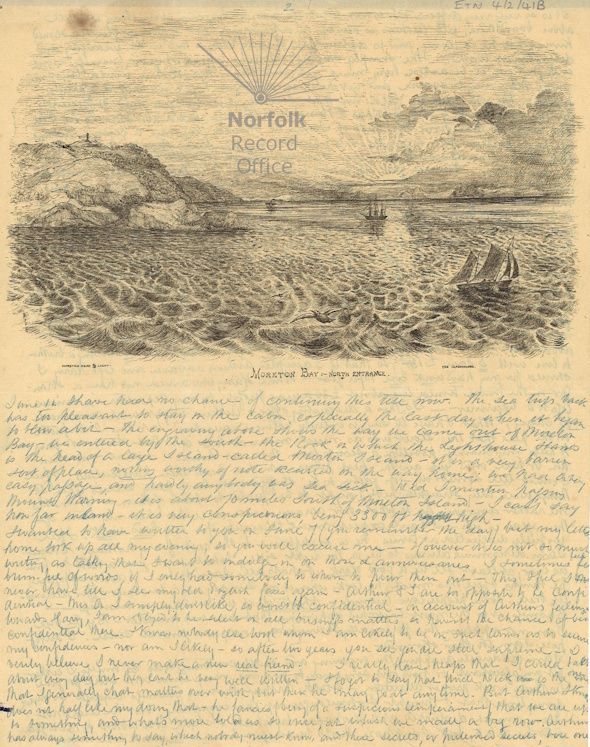 2
ETN 4/2/41B
Norfolk
Record
Office
MORETON BAY - NORTH ENTRANCE.
June 12 I have had no chance of continuing this till now. The sea trip back
has too pleasant to stay in the cabin, especially the last day when it began
to blow abit - The engraving above shows the way we came out of Moreton
Bay - we entered by the South - the Rock on which the Lighthouse stands
is the head of a large Island - called Moreton Island - it is a very barren
sort of place, nothing worthy of note occurred on the way home, we had a very
easy passage, and hardly anybody was sea sick. I did mention
Mount Warning - it is about 70 miles South of Moreton Island - I can't say
how far inland - it is very conspicuous, being 3300 ft high -
I wanted to have written to you on June 7 (you remember the day) but my letter
home took up all my evening, so you will excuse me - However it is not so much
writing, as talking that I want to indulge in on those anniversaries, I sometimes feel
brim full of words, if I only had somebody to whom to pour them out - This I
never have till I see my old English faces again - Arthur & I are so opposite to be conf-
idential - this is I simply don't like to be confidential - on account of Arthur's feelings
towards Mary, I am obliged to be silent on all business matters, so there is the chance of being
confidential there. I know nobody else with whom I am likely to be on such terms as to secure
my confidences - nor am I likely - so after two years you see you are still supreme - I
verily believe I never make a new real friend. I really have heaps that I could talk
about every day but they can't be very well written - I forgot to say that Uncle Dick is the man
that I generally chat matters over with, but then he may go at any time. But Arthur
does not half like my doing that - he fancies being of a suspicious temperament, that we are up
to something, and what's more told us so once, at which we made a big row. Arthur
has always something to say, which nobody must know, and these secrets, or pretended secrets, bore one